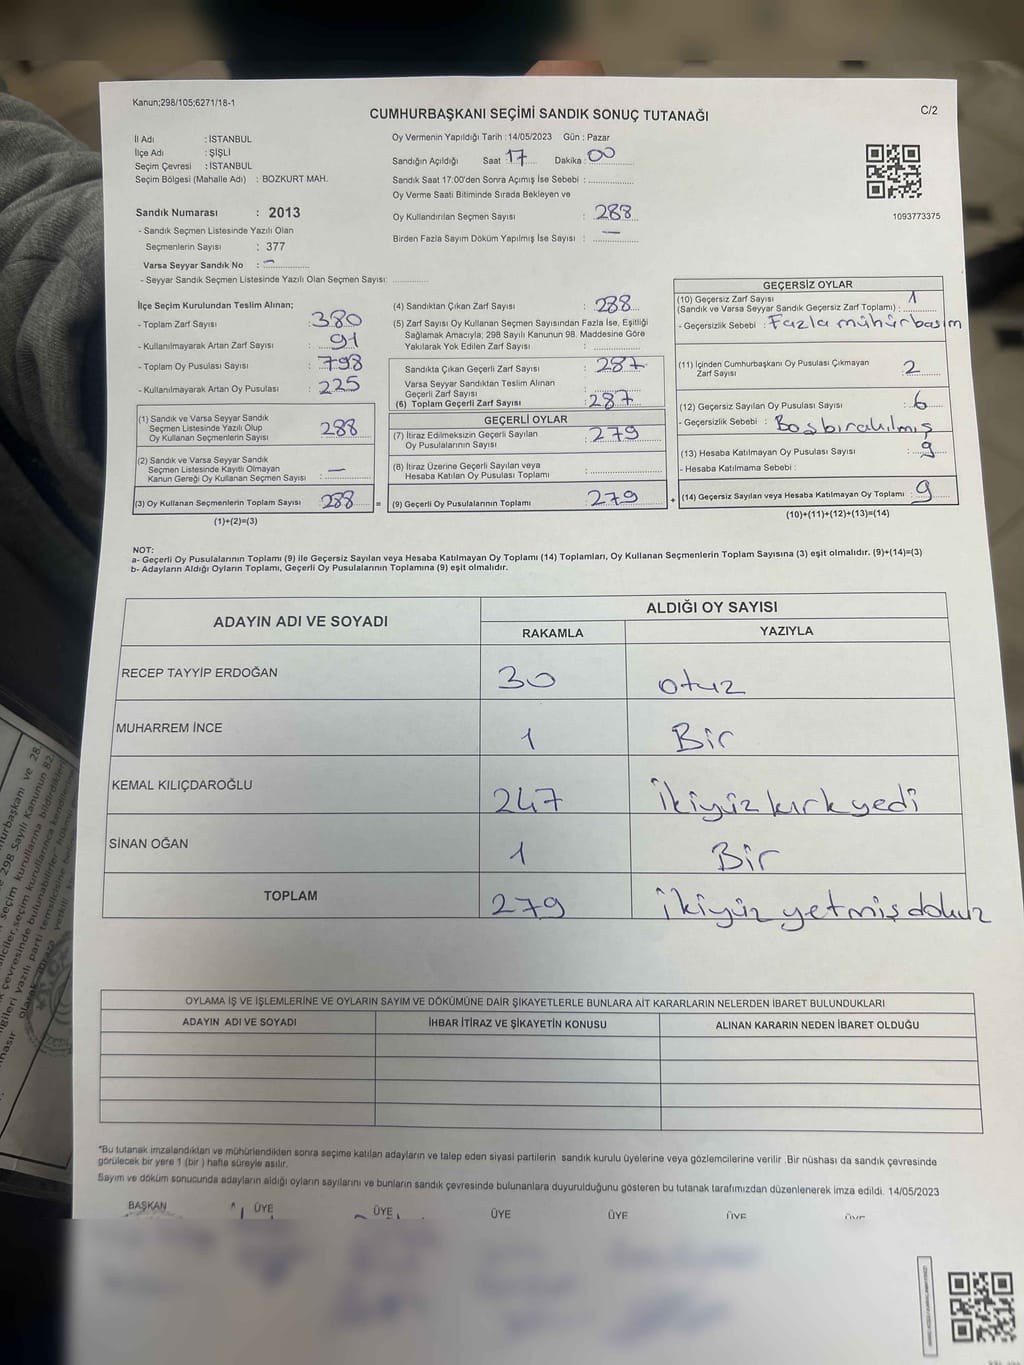 Kanun;298/105;6271/18-1
CUMHURBAŞKANI SEÇİMİ SANDIK SONUÇ TUTANAĞI
C/2
İl Adı : İSTANBUL
İlçe Adı : ŞİŞLİ
Seçim Çevresi : İSTANBUL
Seçim Bölgesi (Mahalle Adı) : BOZKURT MAH.
Sandık Numarası : 2013
- Sandık Seçmen Listesinde Yazılı Olan
Seçmenlerin Sayısı : 377
Varsa Seyyar Sandık No : -
- Seyyar Sandık Seçmen Listesinde Yazılı Olan Seçmen Sayısı:
Oy Vermenin Yapıldığı Tarih : 14/05/2023 Gün : Pazar
Sandığın Açıldığı Saat : 17 Dakika : 00
Sandık Saat 17:00'den Sonra Açımış İse Sebebi :
Oy Verme Saati Bitiminde Sırada Bekleyen ve
Oy Kullandırılan Seçmen Sayısı : 288
Birden Fazla Sayım Döküm Yapılmış İse Sayısı : -
1093773375
İlçe Seçim Kurulundan Teslim Alınan;
- Toplam Zarf Sayısı : 380
- Kullanılmayarak Artan Zarf Sayısı : 91
- Toplam Oy Pusulası Sayısı : 798
- Kullanılmayarak Artan Oy Pusulası : 225
(1) Sandık ve Varsa Seyyar Sandık
Seçmen Listesinde Yazılı Olup
Oy Kullanan Seçmenlerin Sayısı : 288
(2) Sandık ve Varsa Seyyar Sandık
Seçmen Listesinde Kayıtlı Olmayan
Kanun Gereği Oy Kullanan Seçmen Sayısı : -
(3) Oy Kullanan Seçmenlerin Toplam Sayısı : 288
(1)+(2)=(3)
=
(4) Sandıktan Çıkan Zarf Sayısı : 288
(5) Zarf Sayısı Oy Kullanan Seçmen Sayısından Fazla İse, Eşitliği
Sağlamak Amacıyla; 298 Sayılı Kanunun 98. Maddesine Göre
Yakılarak Yok Edilen Zarf Sayısı :
Sandıkta Çıkan Geçerli Zarf Sayısı : 287
Varsa Seyyar Sandıktan Teslim Alınan
Geçerli Zarf Sayısı :
(6) Toplam Geçerli Zarf Sayısı : 287
GEÇERLİ OYLAR
(7) İtiraz Edilmeksizin Geçerli Sayılan
Oy Pusulalarının Sayısı : 279
(8) İtiraz Üzerine Geçerli Sayılan veya
Hesaba Katılan Oy Pusulası Toplamı :
(9) Geçerli Oy Pusulalarının Toplamı : 279
+
GEÇERSİZ OYLAR
(10) Geçersiz Zarf Sayısı
(Sandık ve Varsa Seyyar Sandık Geçersiz Zarf Toplamı) : 1
- Geçersizlik Sebebi : Fazla mühürbasım
(11) İçinden Cumhurbaşkanı Oy Pusulası Çıkmayan
Zarf Sayısı : 2
(12) Geçersiz Sayılan Oy Pusulası Sayısı : 6
- Geçersizlik Sebebi : Boşbırakılmış
(13) Hesaba Katılmayan Oy Pusulası Sayısı : 9
- Hesaba Katılmama Sebebi :
(14) Geçersiz Sayılan veya Hesaba Katılmayan Oy Toplamı : 9
(10)+(11)+(12)+(13)=(14)
NOT:
a- Geçerli Oy Pusulalarının Toplamı (9) ile Geçersiz Sayılan veya Hesaba Katılmayan Oy Toplamı (14) Toplamları, Oy Kullanan Seçmenlerin Toplam Sayısına (3) eşit olmalıdır. (9)+(14)=(3)
b- Adayların Aldığı Oyların Toplamı, Geçerli Oy Pusulalarının Toplamına (9) eşit olmalıdır.
ADAYIN ADI VE SOYADI
ALDIĞI OY SAYISI
RAKAMLA YAZIYLA
RECEP TAYYİP ERDOĞAN 30 otuz
MUHARREM İNCE 1 Bir
KEMAL KILIÇDAROĞLU 247 ikiyüz kırk yedi
SİNAN OĞAN 1 Bir
TOPLAM 279 ikiyüz yetmiş dokuz
OYLAMA İŞ VE İŞLEMLERİNE VE OYLARIN SAYIM VE DÖKÜMÜNE DAİR ŞİKAYETLERLE BUNLARA AİT KARARLARIN NELERDEN İBARET BULUNDUKLARI
ADAYIN ADI VE SOYADI İHBAR İTİRAZ VE ŞİKAYETİN KONUSU ALINAN KARARIN NEDEN İBARET OLDUĞU
"Bu tutanak imzalandıktan ve mühürlendikten sonra seçime katılan adayların ve talep eden siyasi partilerin sandık kurulu üyelerine veya gözlemcilerine verilir .Bir nüshası da sandık çevresinde
görülecek bir yere 1 (bir ) hafta süreyle asılır.
Sayım ve döküm sonucunda adayların aldığı oyların sayılarını ve bunların sandık çevresinde bulunanlara duyurulduğunu gösteren bu tutanak tarafımızdan düzenlenerek imza edildi. 14/05/2023
BAŞKAN ÜYE ÜYE ÜYE ÜYE ÜYE ÜYE